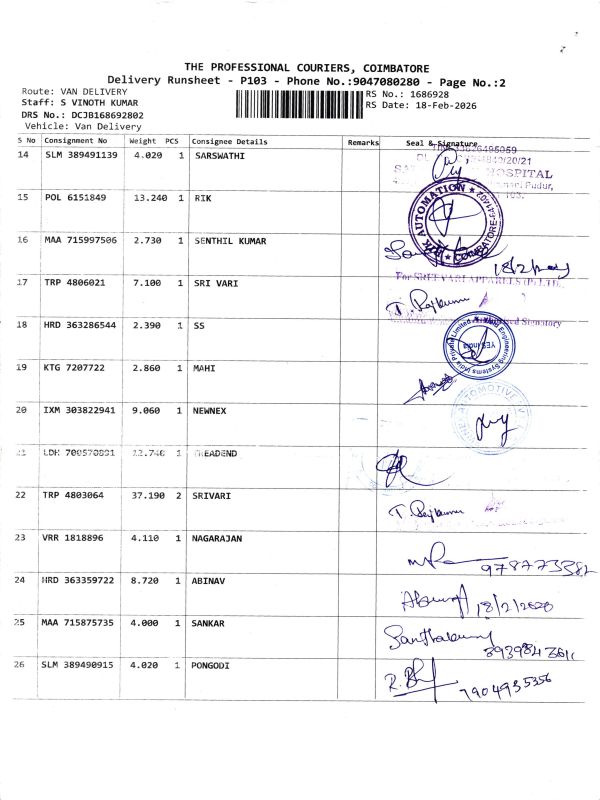 THE PROFESSIONAL COURIERS, COIMBATORE
Delivery Runsheet - P103 - Phone No.:9047080280 - Page No.:2
Route: VAN DELIVERY
Staff: S VINOTH KUMAR
DRS No.: DCJB168692802
Vehicle: Van Delivery
RS No.: 1686928
RS Date: 18-Feb-2026
S No Consignment No Weight PCS Consignee Details Remarks Seal & Signature
14 SLM 389491139 4.020 1 SARSWATHI
HOSPITAL
15 POL 6151849 13.240 1 RIK
AUTOMATION
COIMBATORE
16 MAA 715997506 2.730 1 SENTHIL KUMAR
17 TRP 4806021 7.100 1 SRI VARI
For SREE VARI APPARELS (P) LTD.
T. Rajkumar
Signatory
18 HRD 363286544 2.390 1 SS
YES India
Engineering Systems India Private Limited
19 KTG 7207722 2.860 1 MAHI
20 IXM 303822941 9.060 1 NEWNEX
AUTOMOTIVE
21 LDH 700570891 22.740 1 TREADEND
22 TRP 4803064 37.190 2 SRIVARI
T. Rajkumar
23 VRR 1818896 4.110 1 NAGARAJAN
24 HRD 363359722 8.720 1 ABINAV
25 MAA 715875735 4.000 1 SANKAR
26 SLM 389490915 4.020 1 PONGODI
7904935356